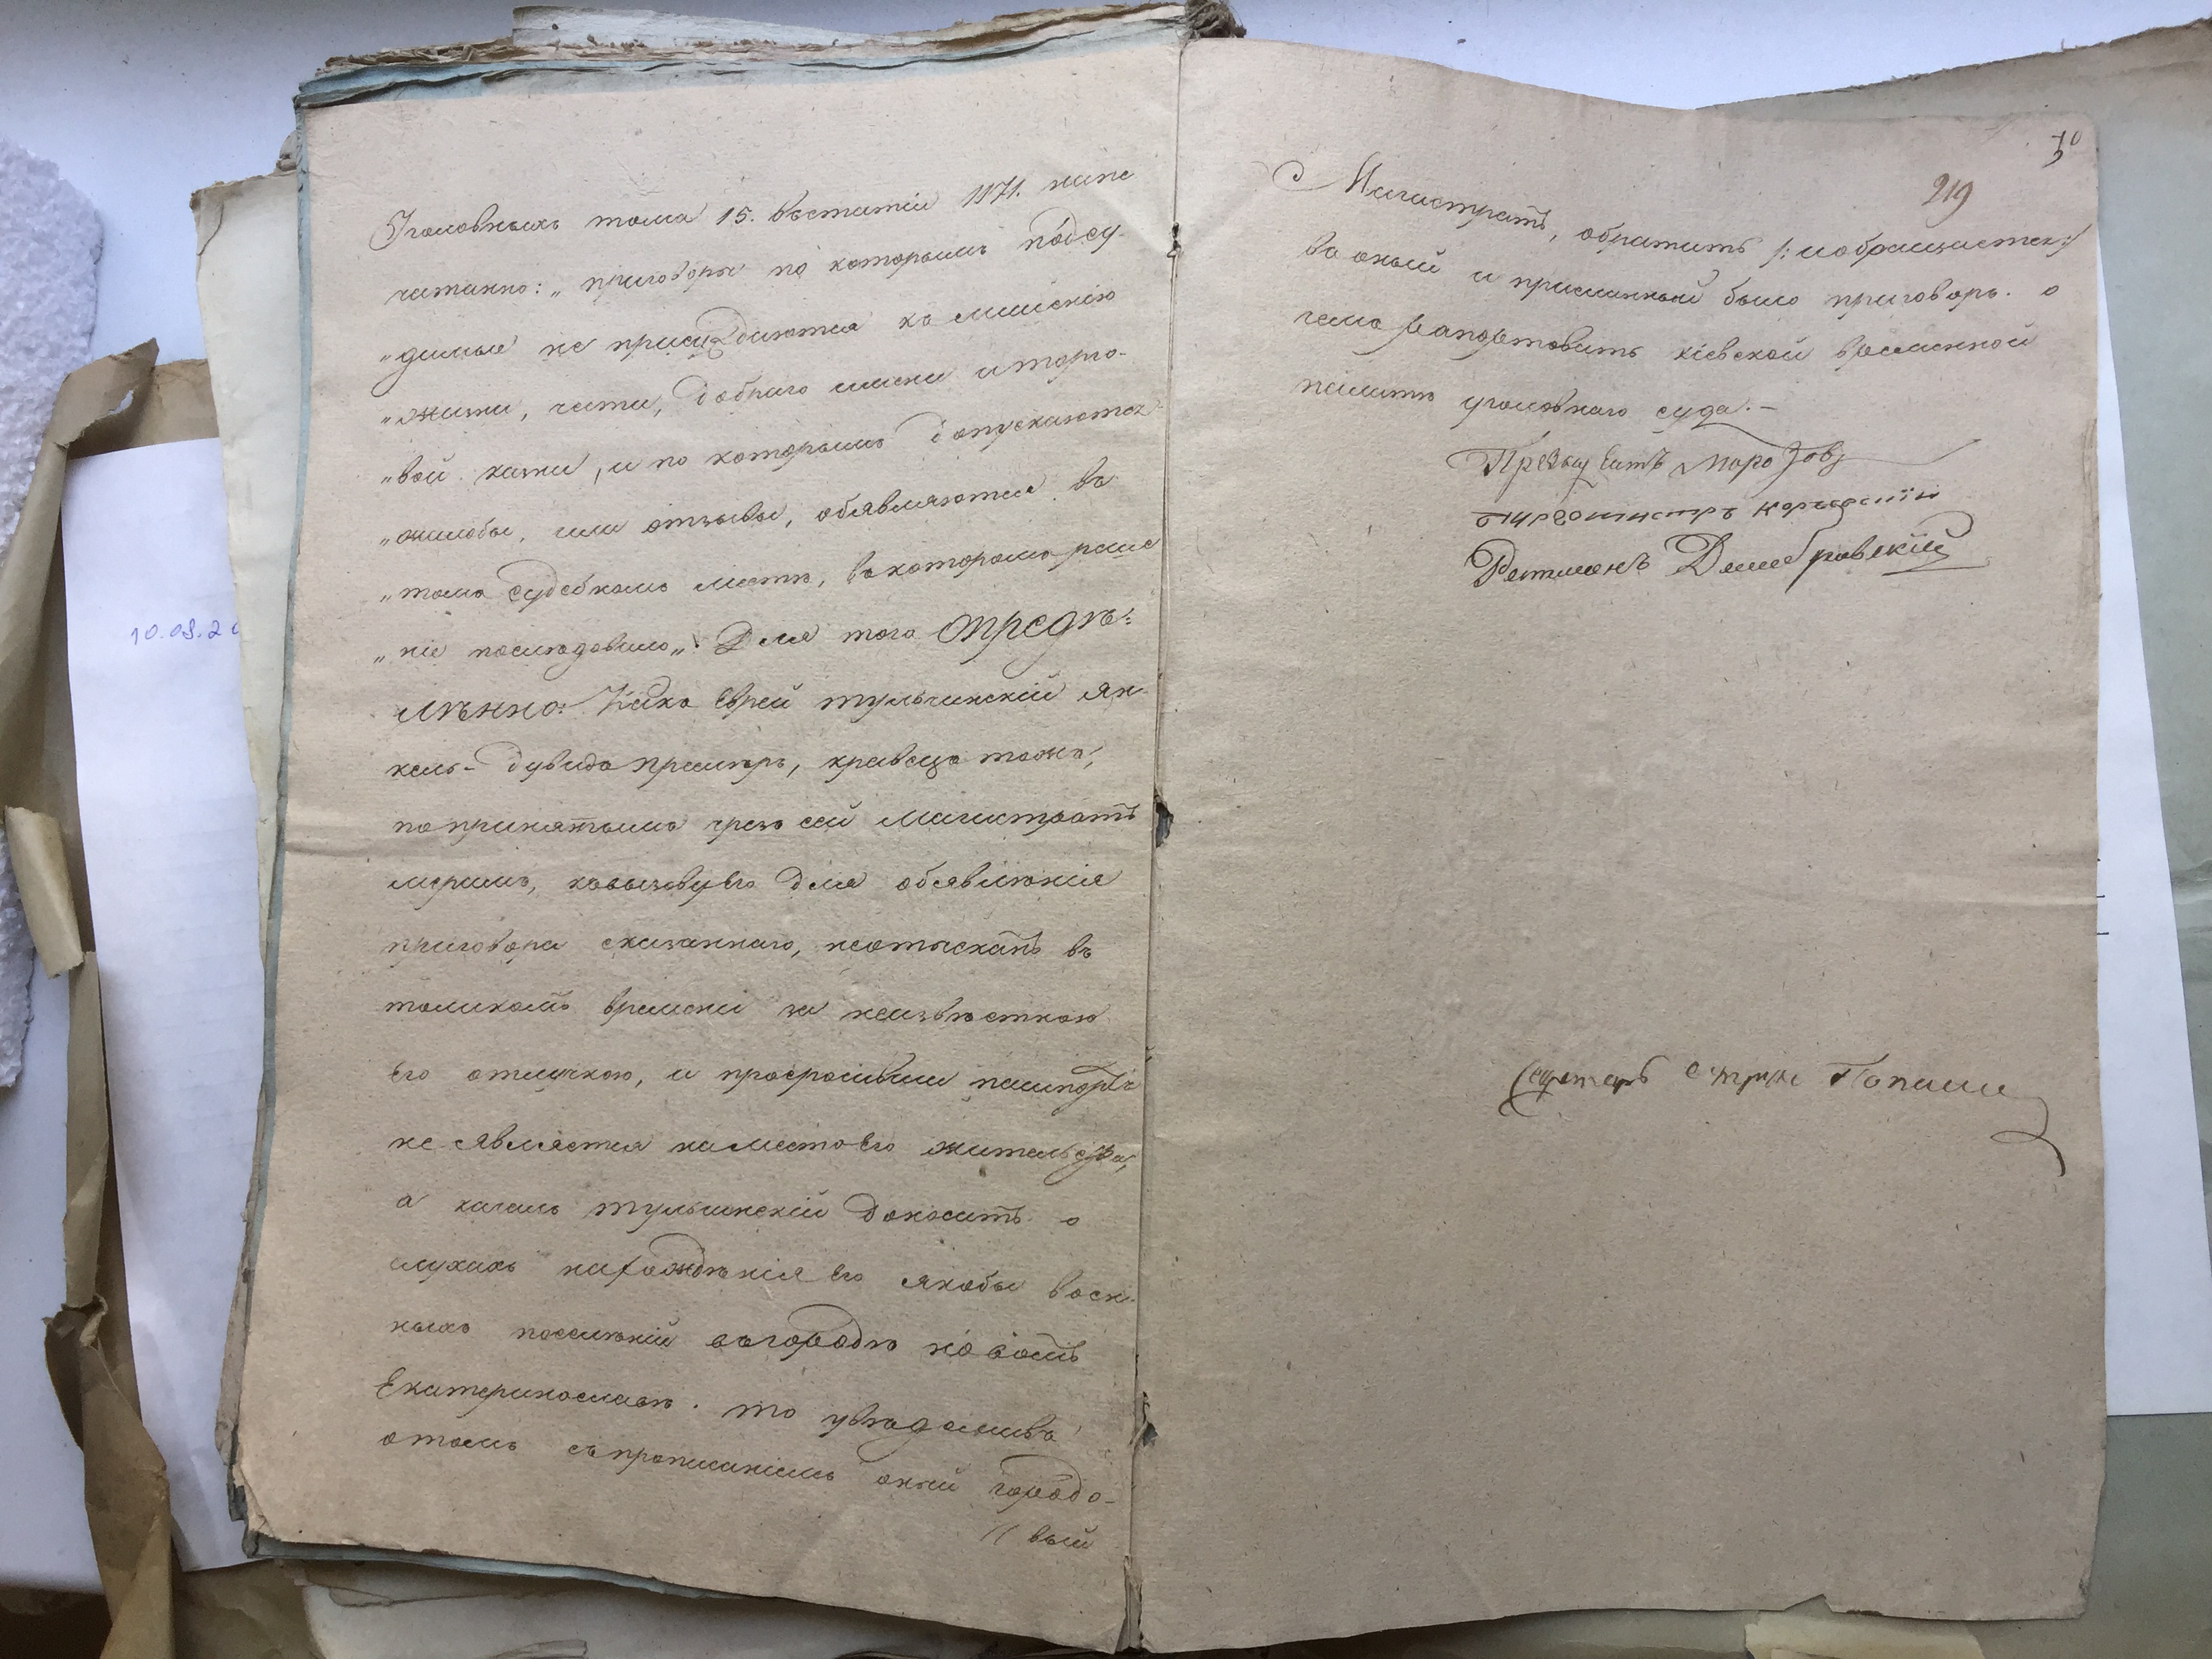 Уголовныхъ тома 15. въстатіи 1171. напе
чатанно: „приговоры по которымъ подсу-
„димые не присуждаются къ лишенію
„жизни, чести, добраго имени и торго-
„вой казни, и по которымъ допускаются
„жалобы, или отзывы, объявляются въ
„томъ судебномъ месте, въкоторомъ реше
„ніе последовало„. Для того опредѣ:
лѣнно: Какъ Еврей тульчинскій Ян-
кель-Дувидъ кравецъ тожъ,
попринятымъ чрезъ сей Магистратъ
мерамъ, квызовуего для объявлѣнія
приговора сказаннаго, неотысканъ въ
толикомъ времени за неизвѣстною
его отлучкою, и просрочивши пашпортъ
не является наместоего жительства,
а кагалъ тульчинскій доноситъ о
слухахъ нахождѣнія его якобы воен-
ныхъ поселѣній въгородѣ новомъ
Екатеринославѣ. то увѣдомивъ
отомъ съпрописаніемъ оный городо-
вый
50
219
Магистратъ, обратить /:иобращается:/
во оный и присланный было приговоръ. о
чемъ рапортовать кіевской временной
палатѣ уголовнаго суда.-
Президентъ Морозовъ
Бургомистръ
Ратманъ Домбровскій
Секретарь
10.08.2